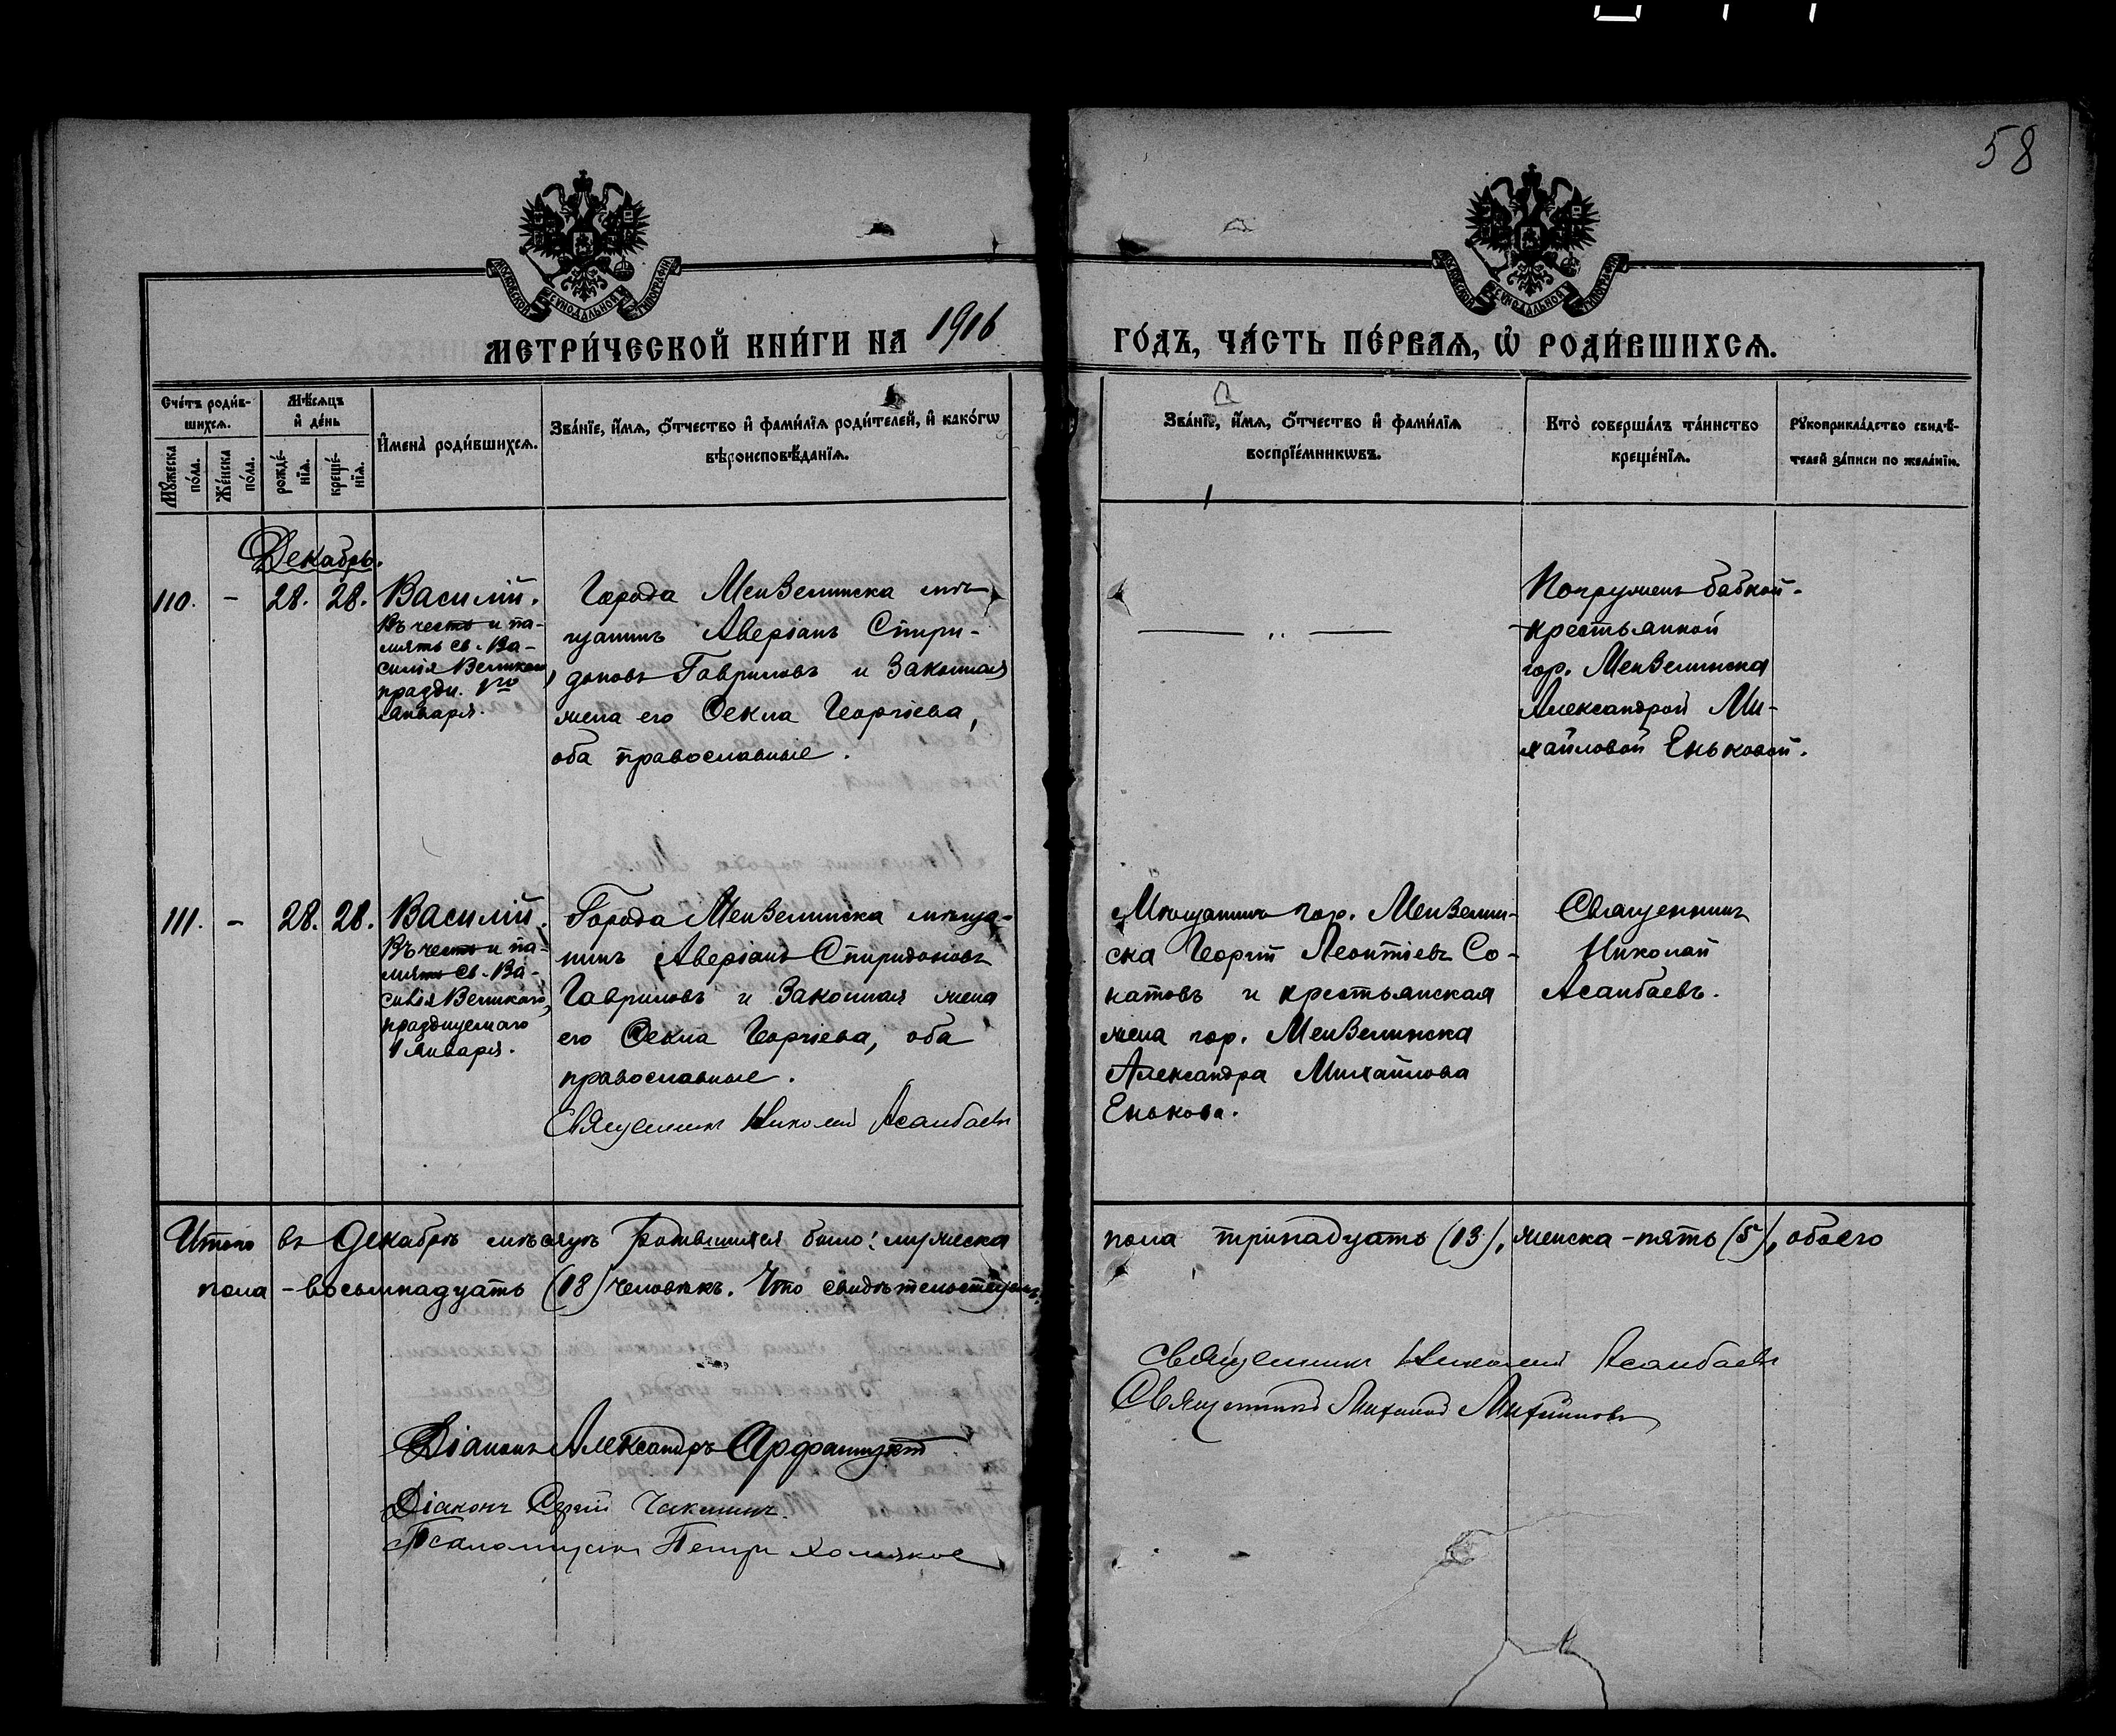 58
МОСКОВСКОЙ СѴНОДАЛЬНОЙ ТИПОГРАФІИ
МОСКОВСКОЙ СѴНОДАЛЬНОЙ ТИПОГРАФІИ
МЕТРИ́ЧЕСКОЙ КНИ́ГИ НА 1916
ГО́ДЪ, ЧА́СТЬ ПЕ́РВАѦ, Ѡ҆ РОДИ́ВШИХСѦ.
Сче́тъ роди́в-
шихсѧ.
Мꙋ́жеска по́ла.
Же́нска по́ла.
Мѣ́сѧцъ
и҆ де́нь
рожде́-
нїѧ.
креще́-
нїѧ.
И҆мена̀ роди́вшихсѧ.
Зва́нїе, и҆́мѧ, ѻ҆́тчество и҆ фами́лїѧ роди́телей, и҆ како́гѡ
вѣроисповѣ́данїѧ.
Зва́нїе, и҆́мѧ, ѻ҆́тчество и҆ фами́лїѧ
воспрїе́мникѡвъ.
Кто̀ соверша́лъ та́инство
креще́нїѧ.
Рꙋкоприкла́дство свидѣ́-
телей за́писи по жела́нїю.
Декабрь.
110. - 28. 28.
Василій.
Въ честь и па-
мять св. Ва-
силія Великаго,
праздн. 1го
января.
Города Мензелинска мѣ-
щанинъ Аверіанъ Спири-
доновъ Гавриловъ и законная
жена его Ѳекла Георгіева,
оба православные.
— „ —
Погруженъ бабкой-
крестьянкой
гор. Мензелинска
Александрой Ми-
хайловой Еньковой.
111. - 28. 28.
Василій.
Въ честь и па-
мять св. Ва-
силія Великаго,
празднуемаго
1 января.
Города Мензелинска мѣща-
нинъ Аверіанъ Спиридоновъ
Гавриловъ и законная жена
его Ѳекла Георгіева, оба
православные.
Священникъ Николай Асанбаевъ
Мѣщанинъ гор. Мензелин-
ска Георгій Леонтіевъ Со-
катовъ и крестьянская
жена гор. Мензелинска
Александра Михайлова
Енькова.
Священникъ
Николай
Асанбаевъ.
Итого въ Декабрѣ мѣсяцѣ родившихся было: мужеска
пола тринадцать (13), женска - пять (5), обоего
пола - восемнадцать (18) человѣкъ. Что свидѣтельствуемъ.
Священникъ Николай Асанбаевъ
Священникъ Михаилъ Михайловъ
Діаконъ Александръ
Діаконъ Сергій
Псаломщикъ Петръ Хомяковъ